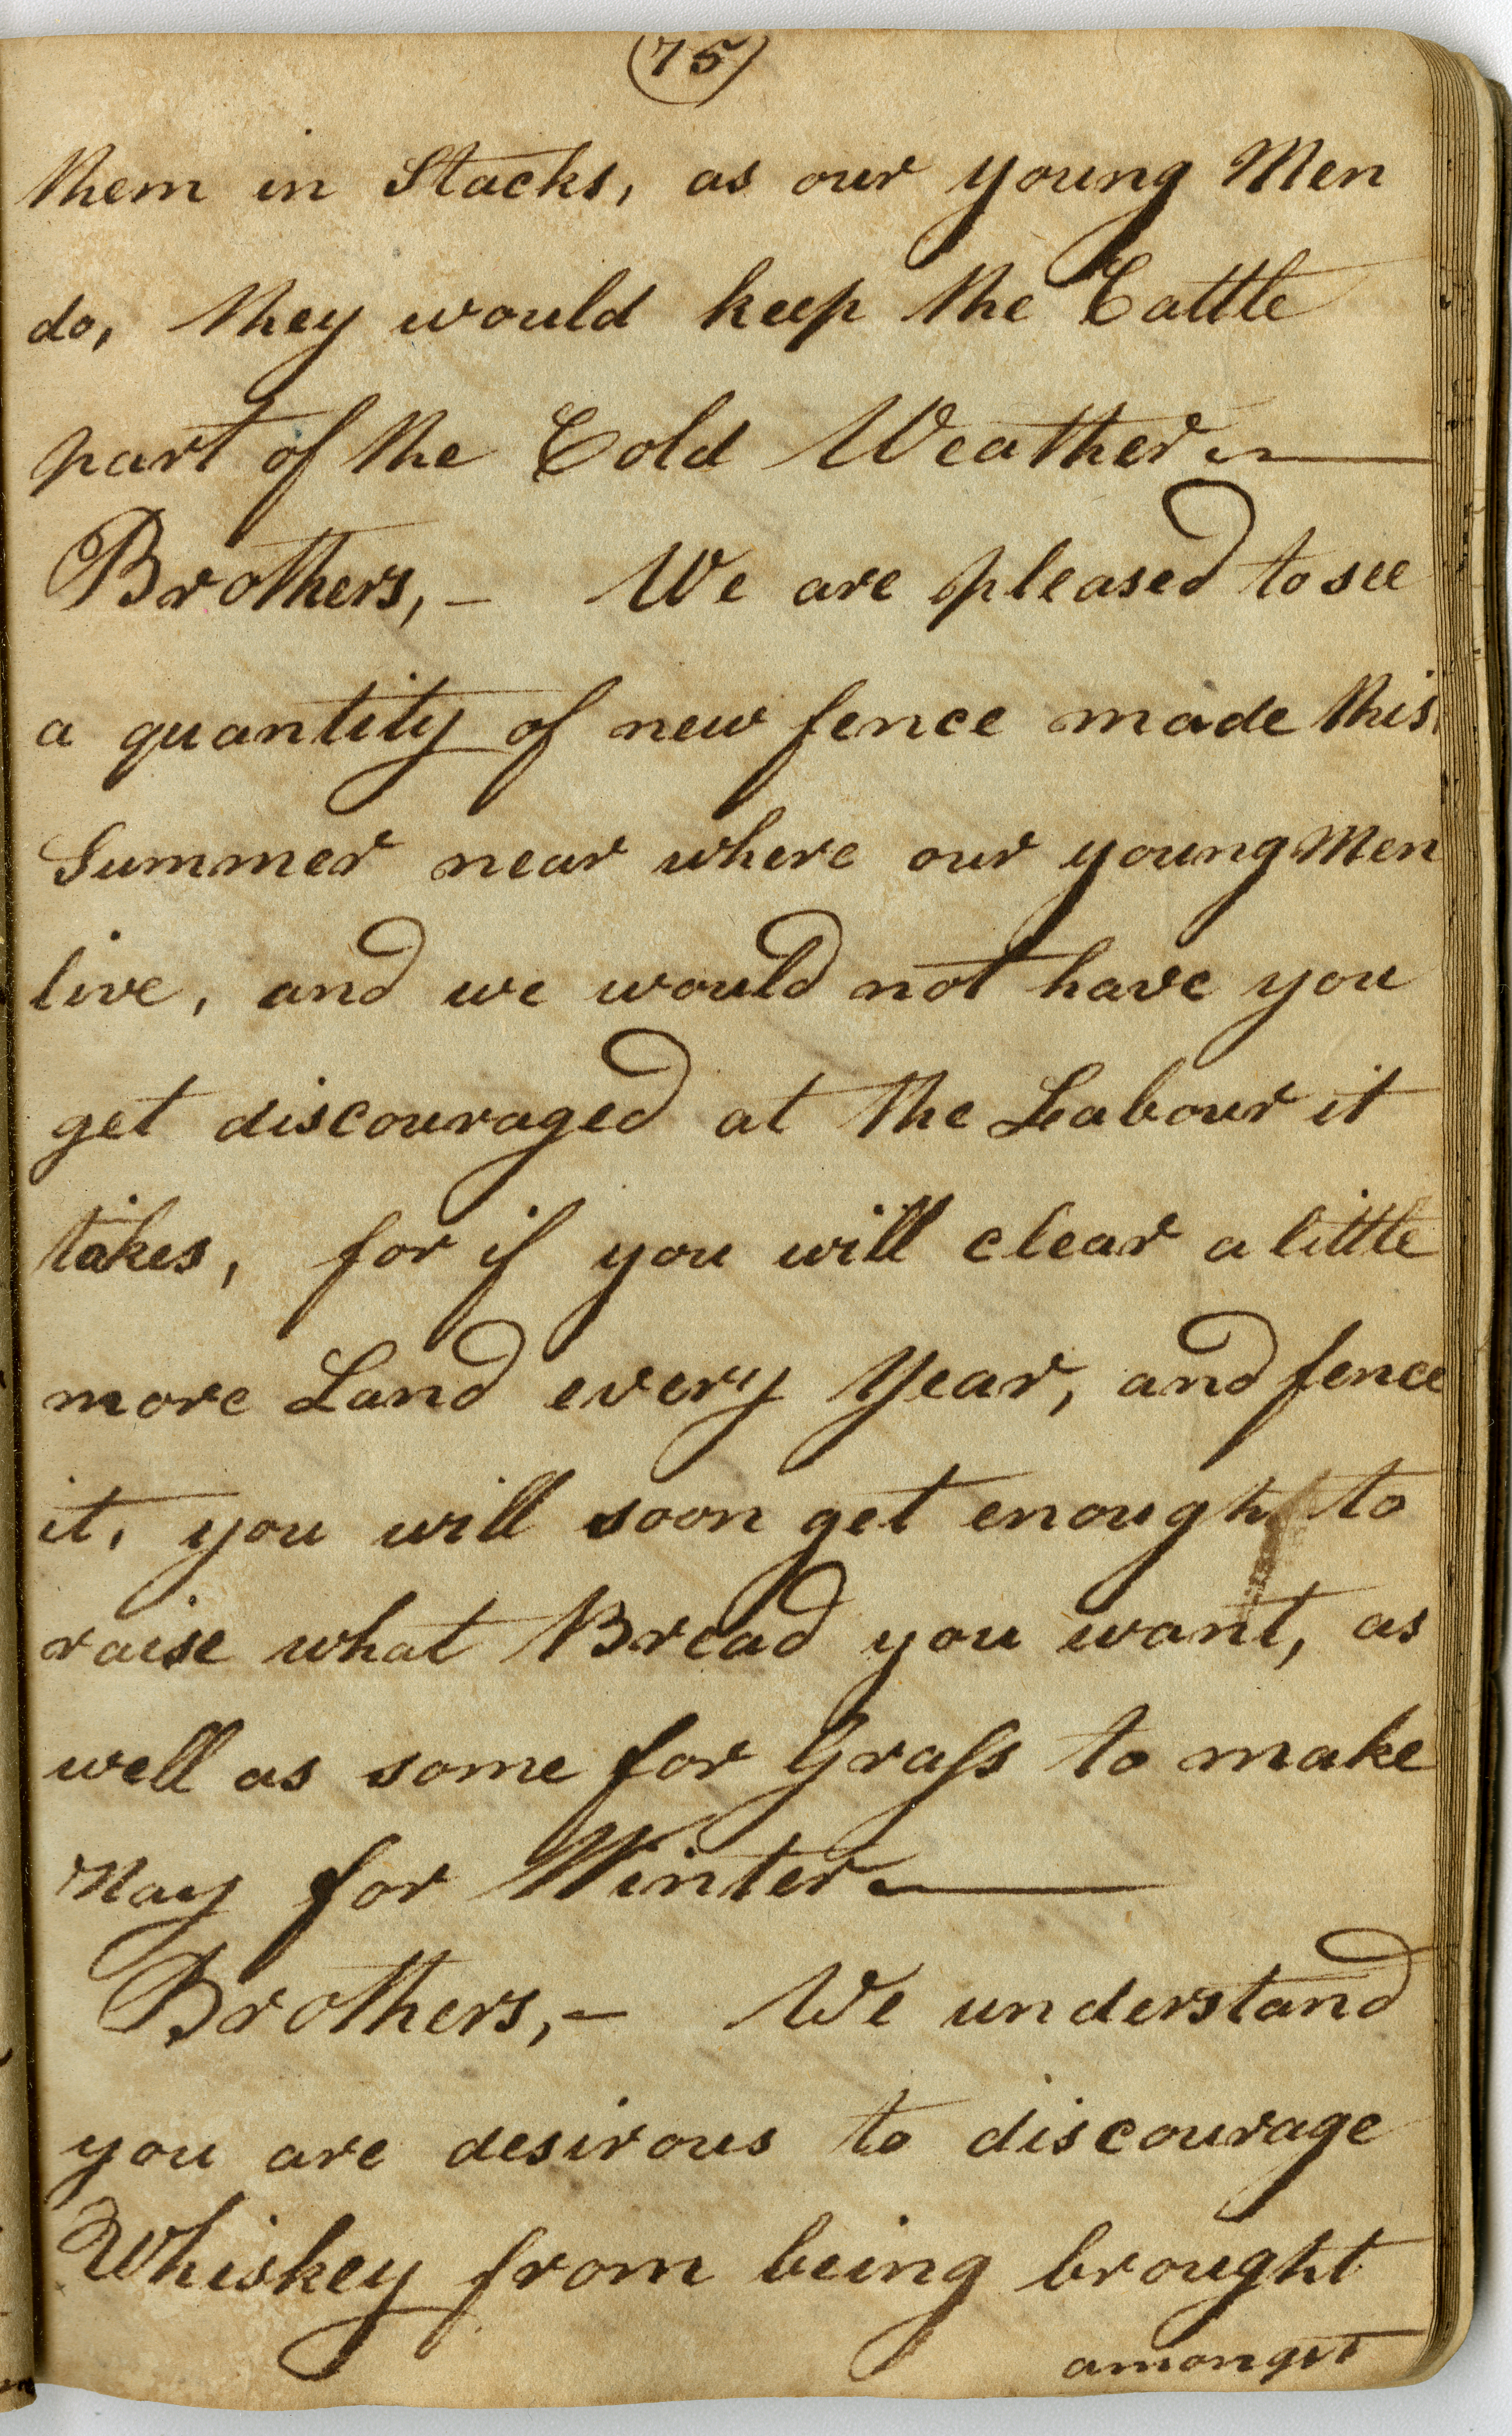 (75)
them in Stacks, as our young Men
do, they would keep the Cattle
part of the Cold Weather —
Brothers, – We are pleased to see
a quantity of new fence made this
Summer near where our young Men
live, and we would not have you
get discouraged at the Labour it
takes, for if you will clear a little
more Land every Year, and fence
it, you will soon get enough to
raise what Bread you want, as
well as some for Graſs to make
Hay for Winter —
Brothers, – We understand
you are desirous to discourage
Whiskey from being brought
amongst